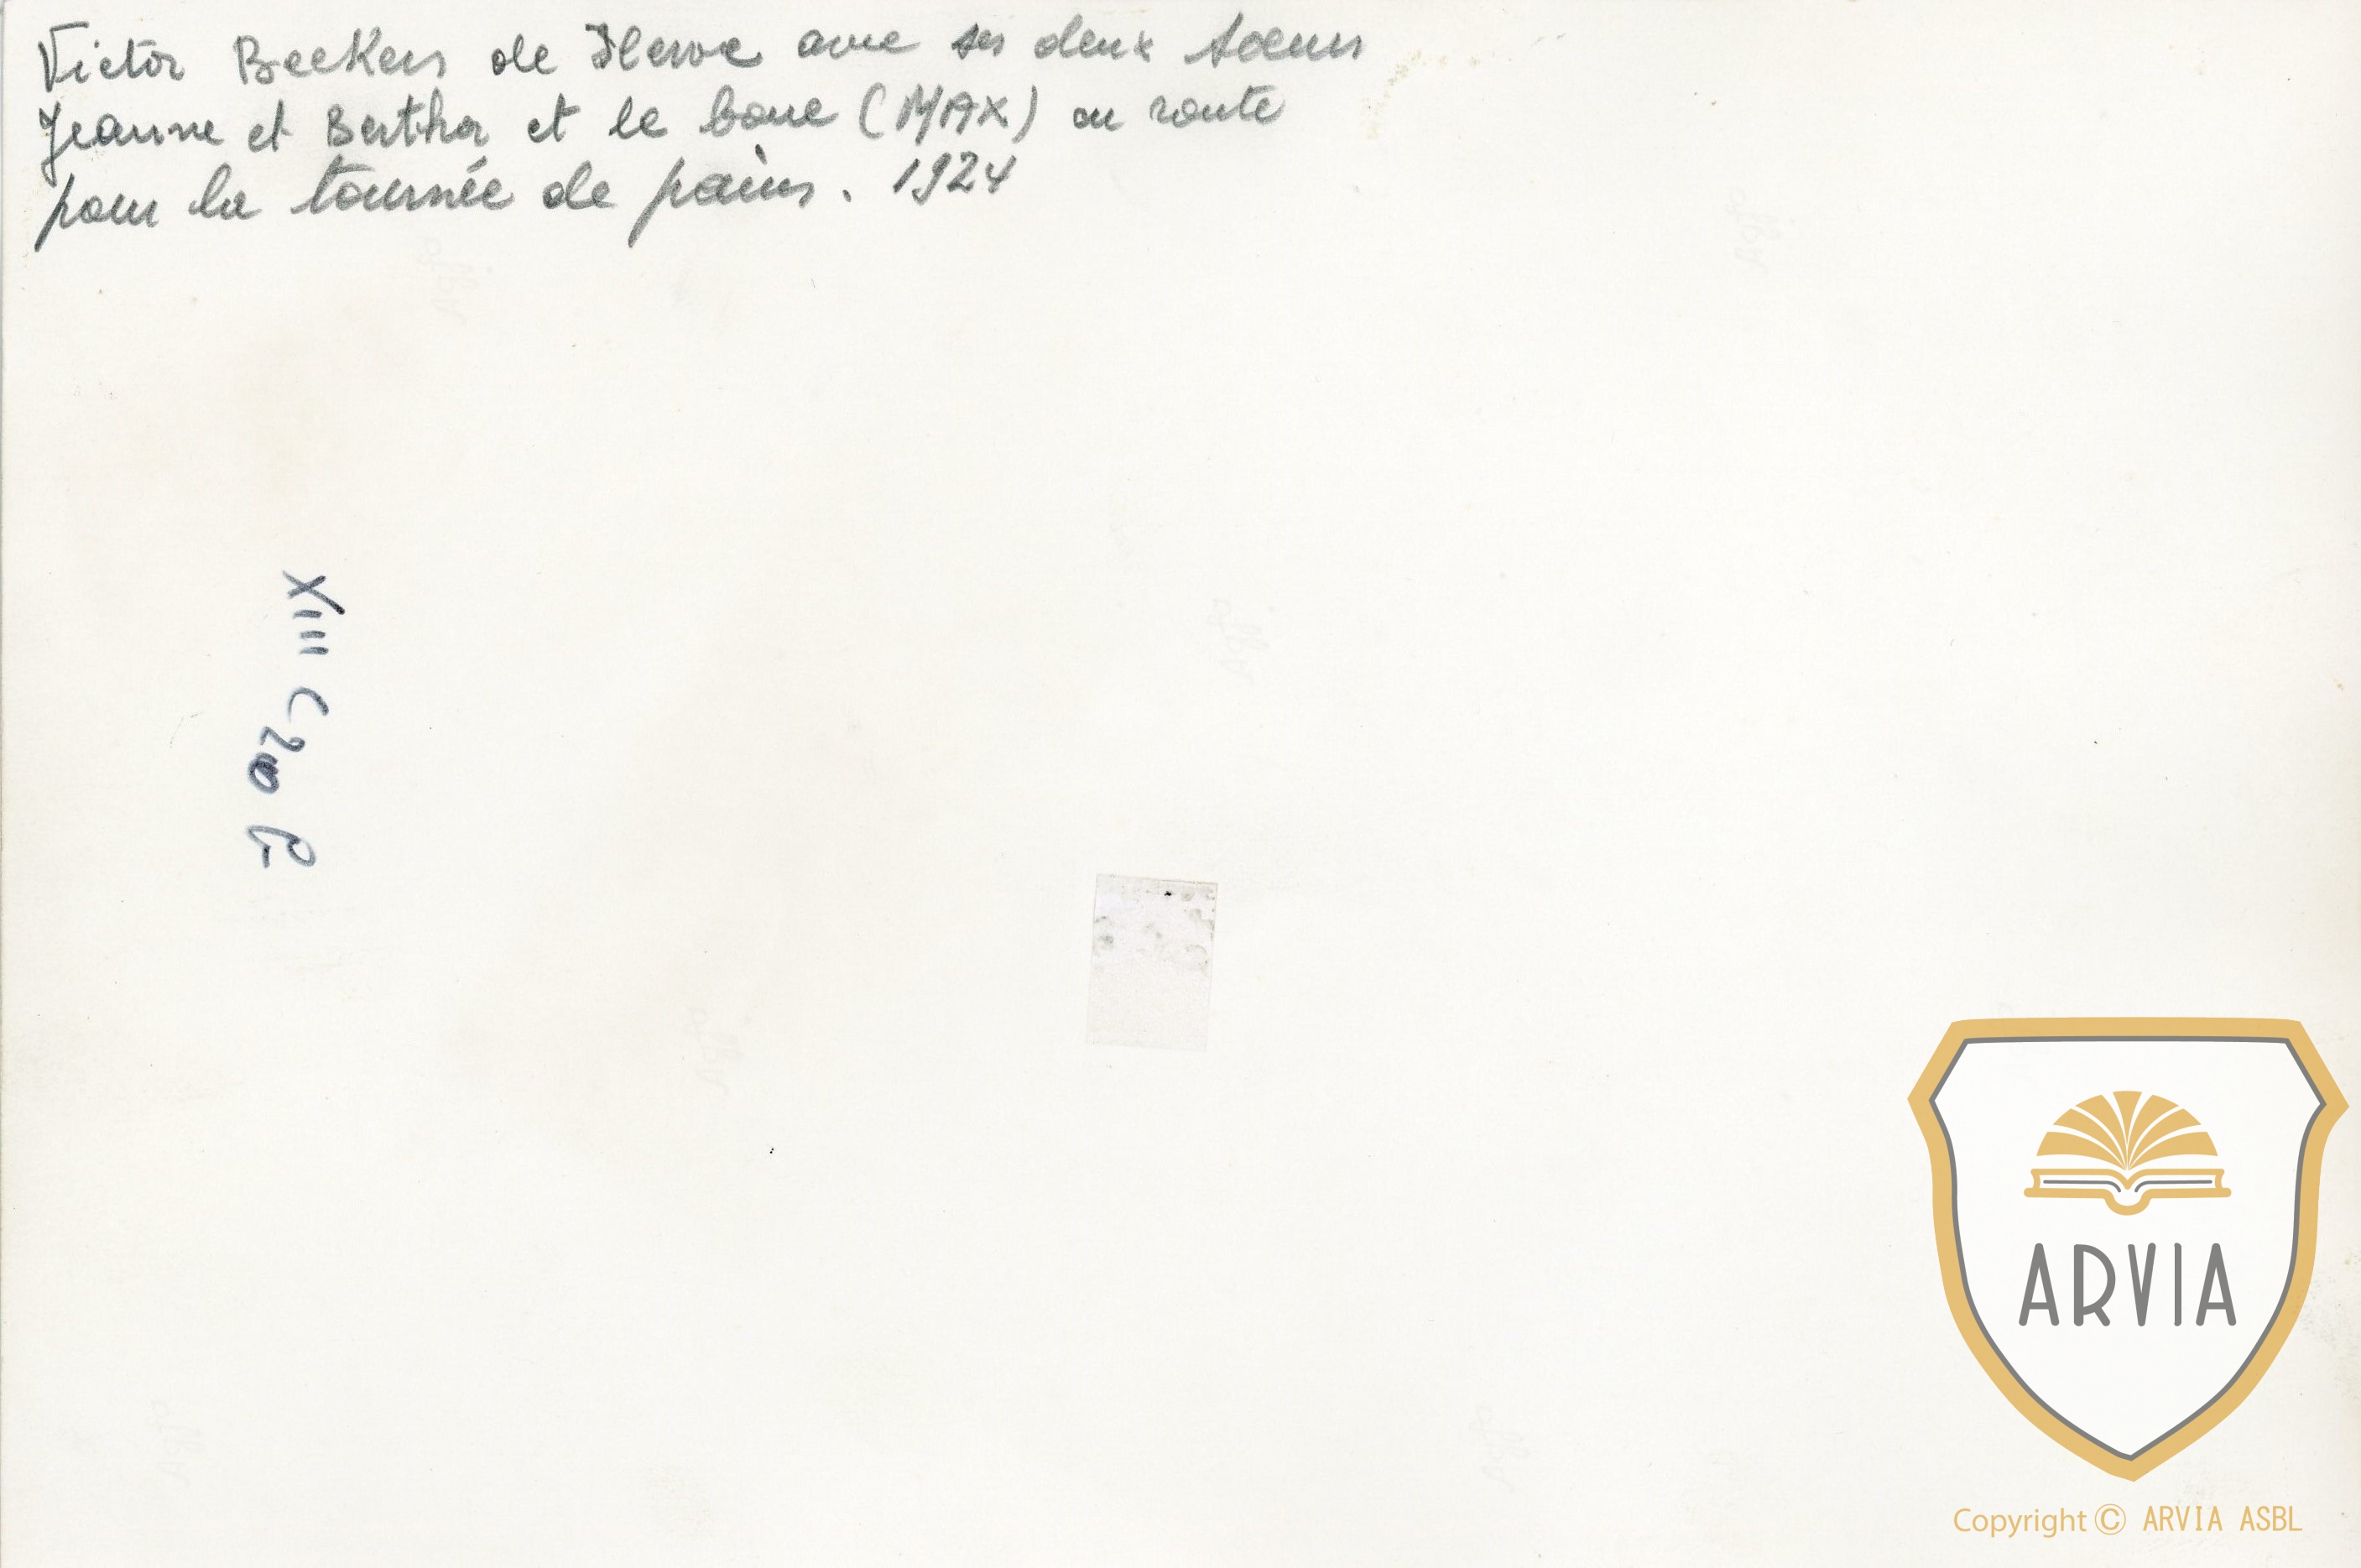 Victor Beckers de Herve avec ses deux soeurs
Jeanne et Bertha et le bouc (MAX) en route
pour la tournée de pains. 1924
XIII C 20
ARVIA
Copyright © ARVIA ASBL